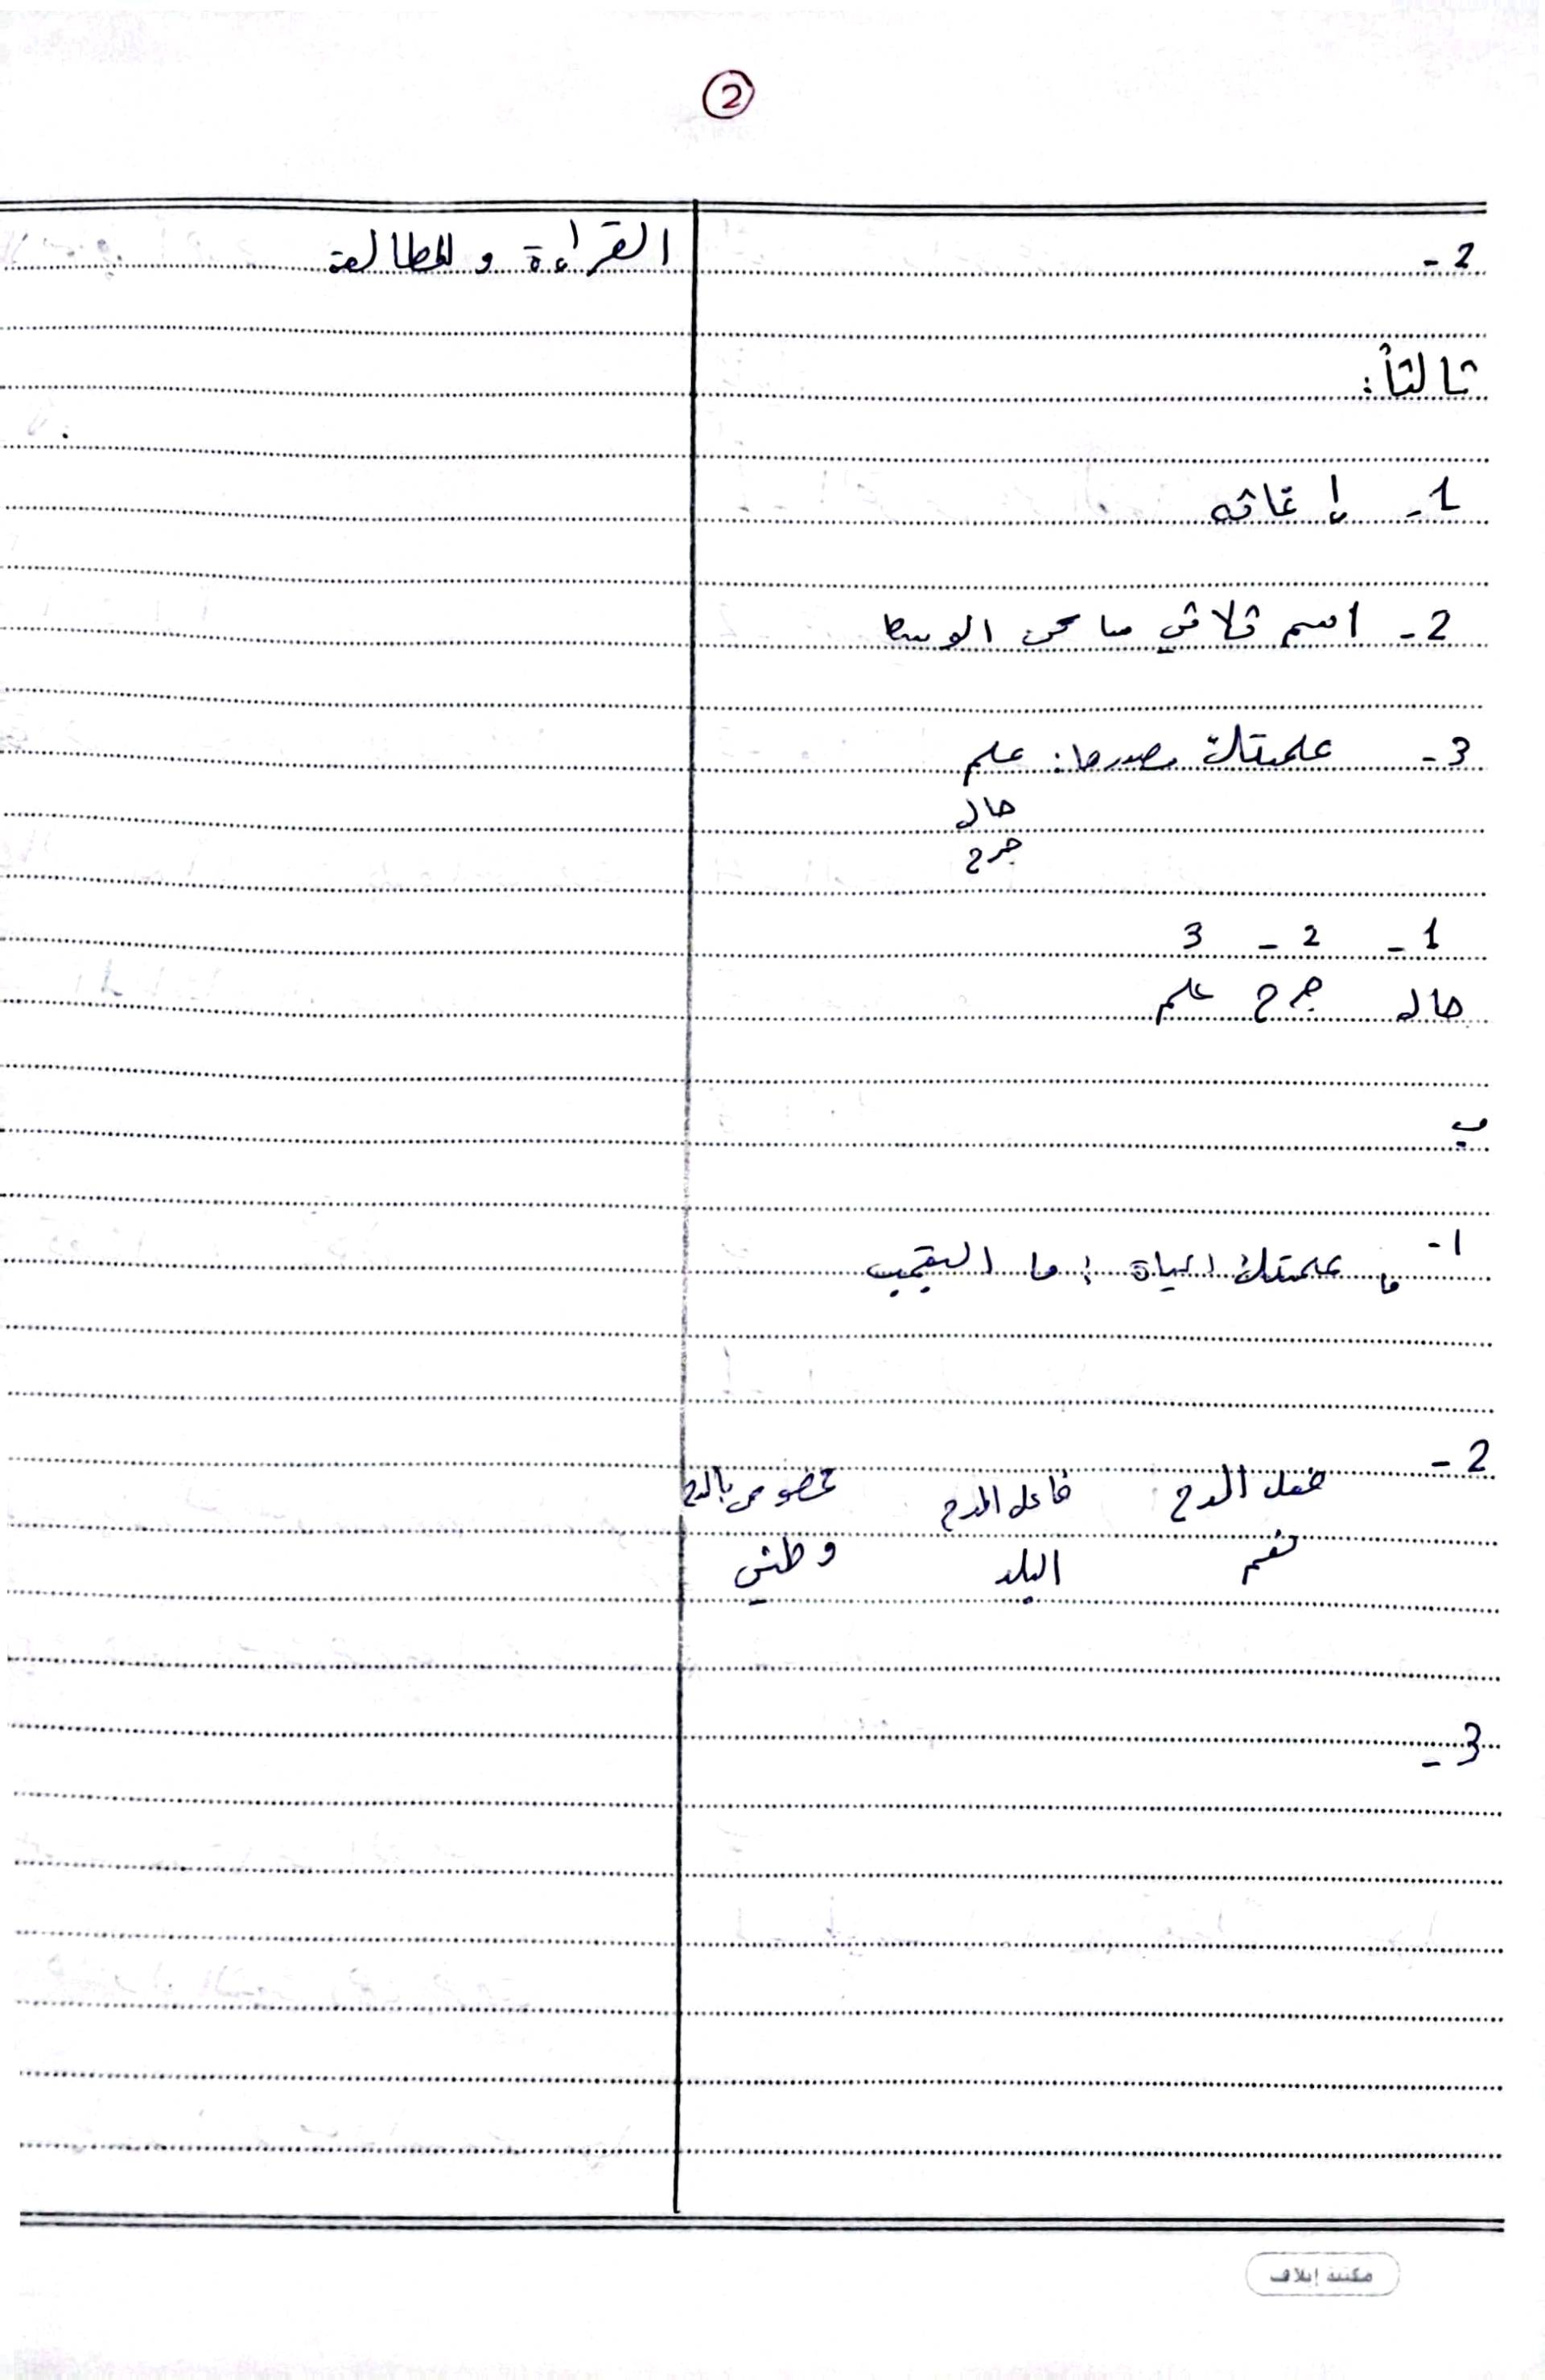 2
2-
ثالثاً:
1- إغاثه
2- اسم ثلاثي ساكن الوسط
3- علمتك مصدرها: علم
حال
جرح
1- 2- 3
حال جرح علم
ب
1- ما علمتك الحياة؟ ما
2-
فعل المدح فاعل المدح مخصوص بالمدح
نعم البلد وطني
3-
القراءة والمطالعة
مكتبة إيلاف